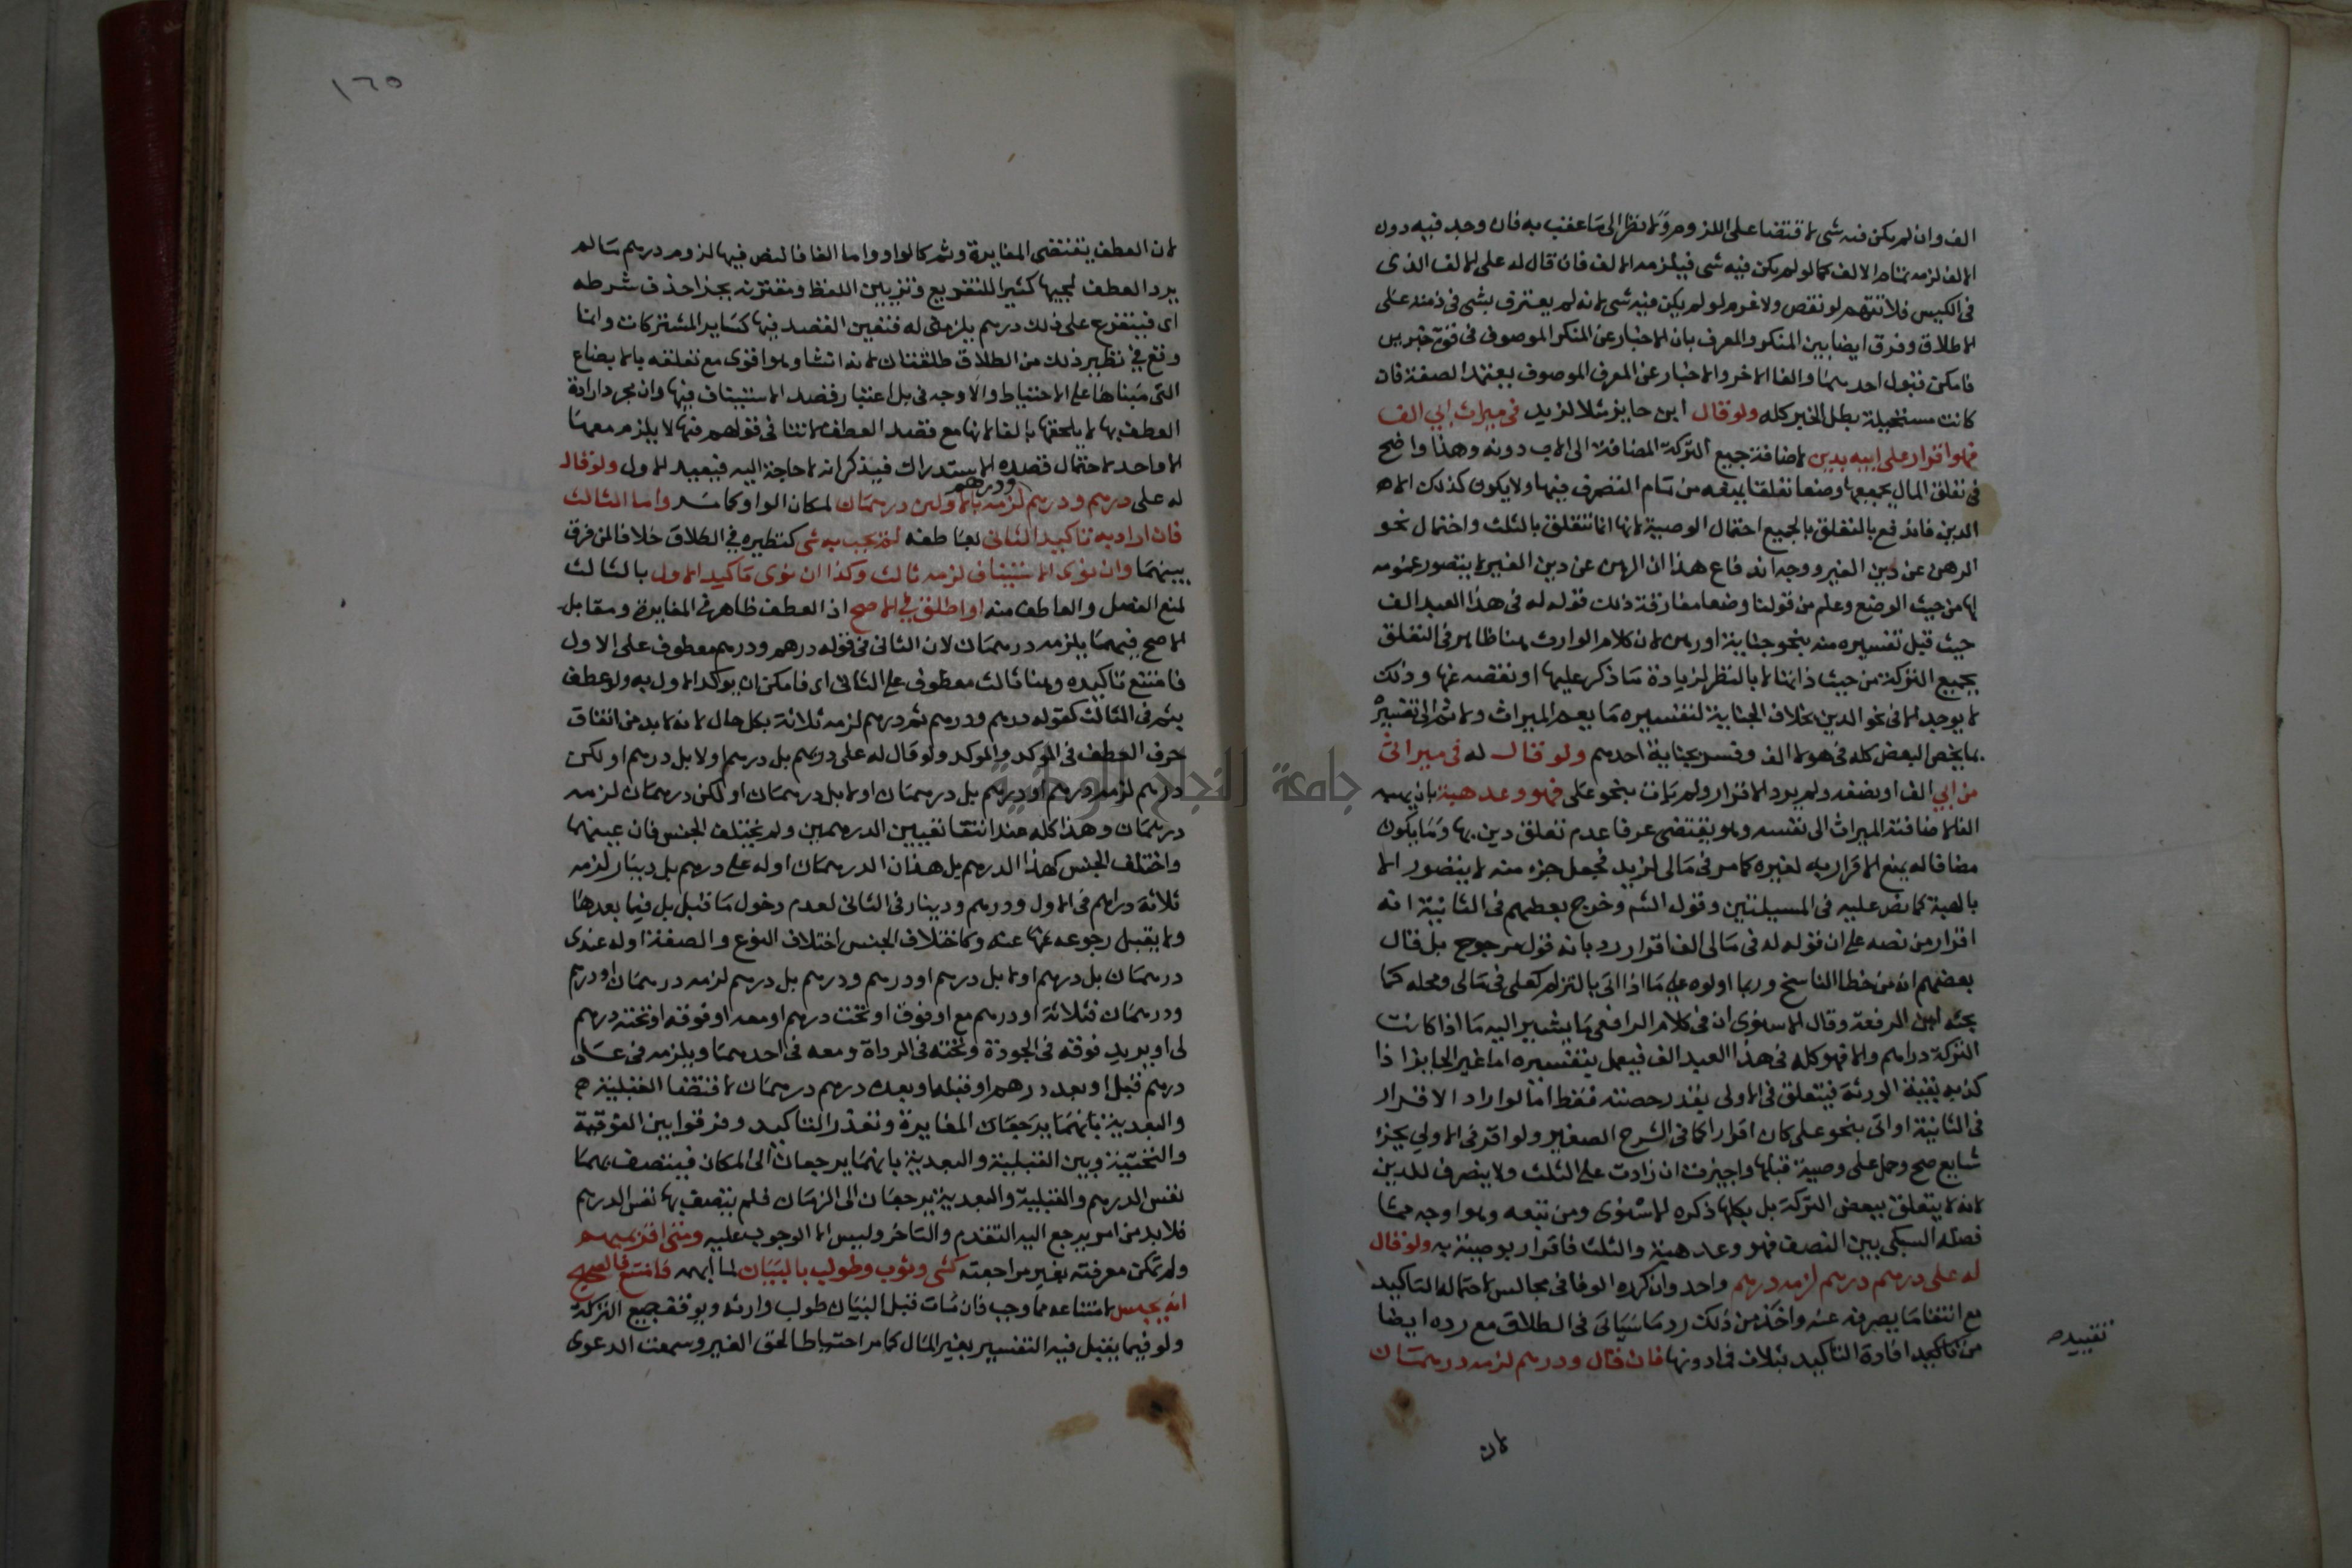 الف وان لم يكن فيه شي لاقتضا على اللزوم ولا نظر الى ما عقب به فان وجد فيه دون
الالف لزمه تمام الالف كما لو لم يكن فيه شي فيلزمه الالف فان قال له على الالف الذى
فى الكيس فلا تتميم لو نقص ولا غرم لو لم يكن فيه شى لانه لم يعترف بشى فى ذمته على
الاطلاق وفرق ايضا بين المنكر والمعرف بان الاخبار عن المنكر الموصوف فى قوة خبرين
فامكن قبول احدهما والغا الاخر والاخبار عن المعرف الموصوف يعتمد الصفة فان
كانت مستحيلة بطل الخبر كله ولو قال ابن حايز مثلا لزيد فى ميراث ابي الف
فهو اقرار على ابيه بدين لاضافته جميع التركة المضافة الى الاب دونه وهذا واضح
فى تعلق المال بجميعها وضعا تعلقا يمنعه من تمام التصرف فيها ولا يكون كذلك الا
الدين فاندفع بالتعلق بالجميع احتمال الوصية لانها انما تتعلق بالثلث واحتمال نحو
الرهن عن دين الغير ووجه اندفاع هذا ان الرهن عن دين الغير لا يتصور عمومه
لها من حيث الوضع وعلم من قولنا وضعا مفارقة ذلك قوله له فى هذا العبد الف
حيث قبل تفسيره منه بنحو جناية او رهن لان كلام الوارث هنا ظاهر فى التعلق
بجميع التركة من حيث ذاتها لا بالنظر لزيادة ما ذكر عليها او نقصه عنها وذلك
لا يوجد الا فى نحو الدين بخلاف الجناية لتفسيره ما يعم الميراث ولا تم الى تفسيره
بما يخص البعض كله فى هولا الف وفسر بجناية احدهم ولو قال له فى ميراثى
من ابي الف او نصفه ولم يرد الاقرار ولم يات بنحو على فهو وعد هبة بان يهبه
الفا لاضافة الميراث الى نفسه وهو يقتضى عرفا عدم تعلق دين بها وما يكون
مضافا له يمنع الاقرار به لغيره كما مر فى مالى لزيد فجعل جزء منه لا يتصور الا
بالهبة كما نص عليه فى المسيلتين وقول الشم وخرج بعضهم فى الثانية انه
اقرار من نصه على ان قوله له فى مالى الف اقرار رد بانه قول مرجوح بل قال
بعضهم انه من خطا الناسخ وربما اولوه على ما اذا اتى بالتزام كعلى فى مالى ومحله كما
بحثه ابن الرفعة وقال الاسنوى ان فى كلام الرافعى ما يشير اليه ما اذا كانت
التركة دراهم والا فهو كله فى هذا العبد الف فيعمل بتفسيره اما غير الحايز اذا
كذبه بقية الورثة فيتعلق فى الاولى بقدر حصته فقط اما لو اراد الاقرار
فى الثانية او اتى بنحو على كان اقرارا كما فى الشرح الصغير ولو اقر فى الاولي بجزء
شايع صح وحمل على وصية قبلها واجيزت ان زادت على الثلث ولا ينصرف للدين
لانه لا يتعلق ببعض التركة بل بكلها ذكره الاسنوى ومن تبعه وهو اوجه مما
فصله السبكى بين النصف فهو وعد هبة والثلث فاقرار بوصية به ولو قال
له على درهم درهم لزمه درهم واحد وان كرره الوفا فى مجالس لاحتماله التاكيد
مع انتفا ما يصرفه عنه واخذ من ذلك رد ما سياتى فى الطلاق مع رده ايضا
من تاكيد افادة التاكيد بثلاث فادونها فان قال ودرهم لزمه درهمان
تقييده
لان
١٦٥
لان العطف يقتضى المغايرة وثم كالواو واما الفا فالنص فيها لزوم درهم ما لم
يرد العطف لمجيها كثيرا للتفريع وتزيين اللفظ ومقترنه بجزا حذف شرطه
اى فيتفرع على ذلك درهم يلزمنى له فتعين القصد فيها كساير المشتركات وانما
وقع فى نظير ذلك من الطلاق طلقتان لانه انشا وهو اقوى مع تعلقه بالابضاع
التى مبناها على الاحتياط والاوجه فى بل اعتبار قصد الاستيناف فيها وان مجرد ارادة
العطف بها لا يلحقها بالفا لانها مع قصد العطف لا تنافى قولهم فيها لا يلزم معها
الا واحد لاحتمال قصده الاستدراك فيذكر انه لا حاجة اليه فيعيد الاول ولو قال
له على درهم ودرهم ودرهم لزمه بالاولين درهمان لمكان الواو كما مر واما الثالث
فان اراد به تاكيد الثانى بعاطفه لم يجب به شى كنظيره فى الطلاق خلافا لمن فرق
بينهما وان نوى الاستيناف لزمه ثالث وكذا ان نوى تاكيد الاول بالثالث
لمنع الفصل والعاطف منه او اطلق فى الاصح اذ العطف ظاهر فى المغايرة ومقابل
الاصح فيهما يلزمه درهمان لان الثانى فى قوله درهم ودرهم معطوف على الاول
فامتنع تاكيده وهنا ثالث معطوف على الثانى اى فامكن ان يوكد الاول به ولو عطف
بثم فى الثالث كقوله درهم ودرهم ثم درهم لزمه ثلاثة بكل حال لانه لا بد من اتفاق
حرف العطف فى الموكد والموكد ولو قال له على درهم بل درهم او لا بل درهم او لكن
درهم لزمه درهم او درهم بل درهمان او لا بل درهمان او لكن درهمان لزمه
درهمان وهذا كله عند انتفا تعيين الدرهمين ولم يختلف الجنس فان عينهما
واختلف الجنس كهذا الدرهم بل هذان الدرهمان او له على درهم بل دينار لزمه
ثلاثة دراهم فى الاول ودرهم ودينار فى الثانى لعدم دخول ما قبل بل فيما بعدها
ولا يقبل رجوعه عنها عنه وكاختلاف الجنس اختلاف النوع والصفة او له عندى
درهمان بل درهم او لا بل درهم او درهم ودرهم بل درهم لزمه درهمان او درهم
ودرهمان فثلاثة او درهم مع او فوق او تحت درهم او معه او فوقه او تحته درهم
لى او يريد فوقه فى الجودة وتحته فى الرداة ومعه فى احدهما ويلزمه فى على
درهم قبل او بعد درهم او قبله او بعده درهم درهمان لاقتضا القبلية
والبعدية بانهما يرجعان المغايرة وتعذر التاكيد وفرقوا بين الفوقية
والتحتية وبين القبلية والبعدية بانهما يرجعان الى المكان فيتصف بهما
نفس الدرهم والقبلية والبعدية يرجعان الى الزمان فلم يتصف بها نفس الدرهم
فلا بد من امر يرجع اليه التقدم والتاخر وليس الا الوجوب عليه ومتى اقر بمبهم
ولم تمكن معرفته بغير مراجعته كشى وثوب وطولب بالبيان لما ابهمه فامتنع فالصحيح
انه يحبس لامتناعه مما وجب فان مات قبل البيان طولب وارثه ويوقف جميع التركة
ولو فيما يقبل فيه التفسير بغير المال كما مر احتياطا لحق الغير وسمعت الدعوى
جامعة النجاح الوطنية